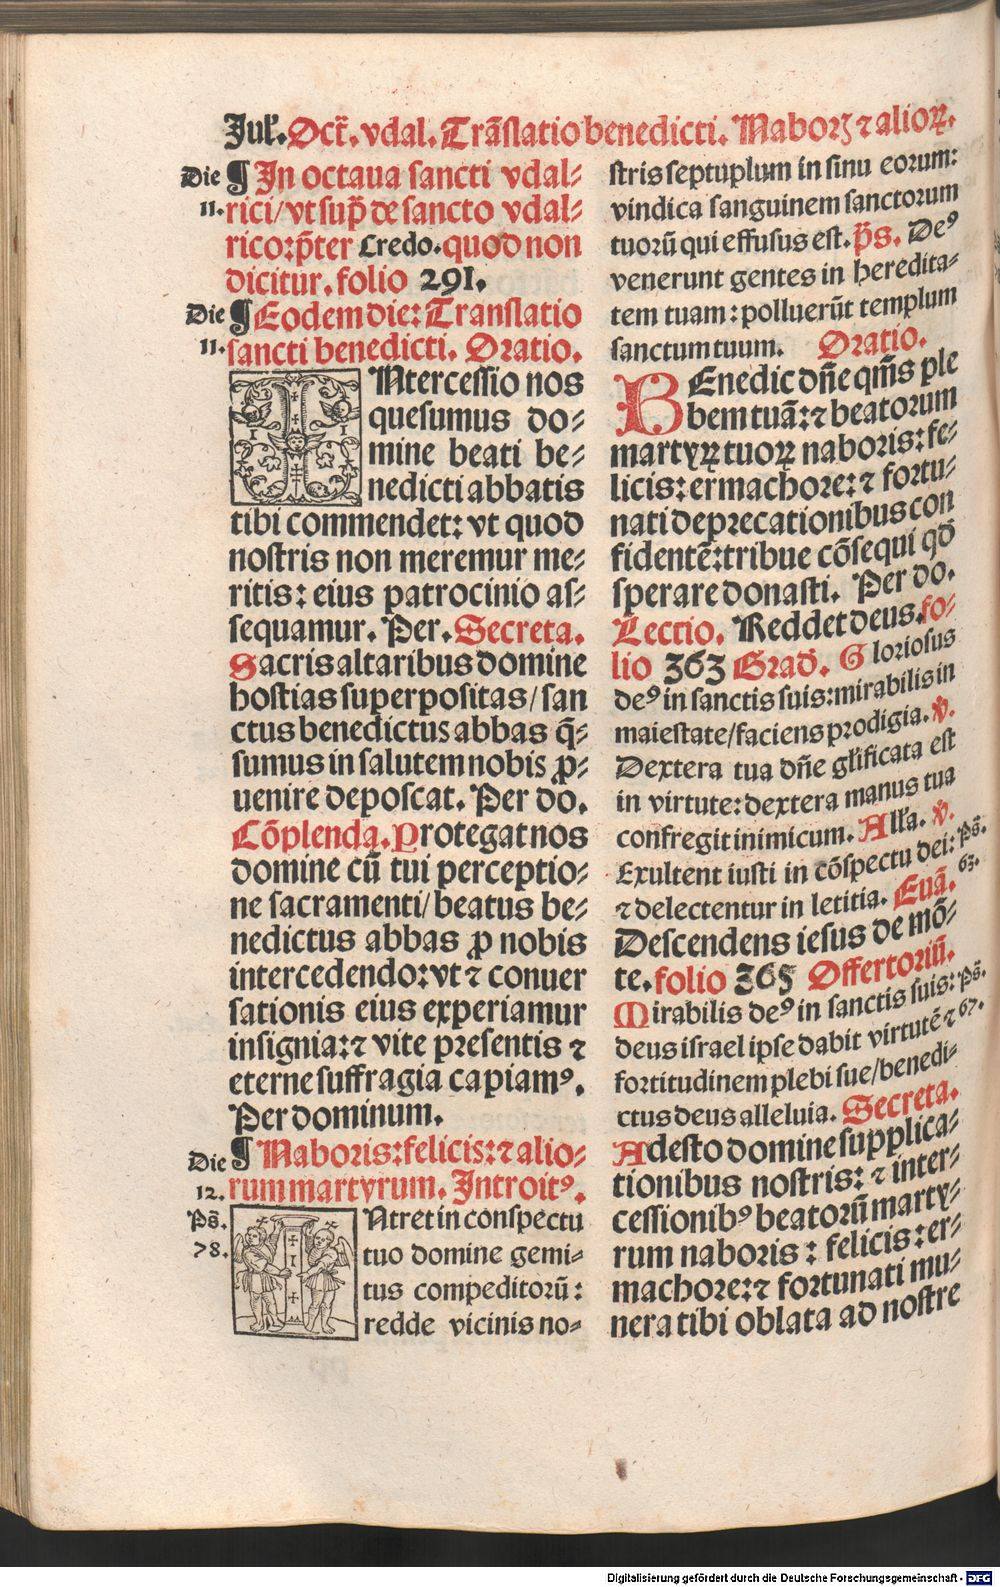 Jul'. Oct̄. vdal. Trāslatio benedicti. Naborꝫ ⁊ alioꝝ.
Die ¶ In octaua sancti vdal⸗
11. rici/ vt sup̄ de sancto vdal⸗
rico: p̄ter Credo. quod non
dicitur. folio 291.
Die ¶ Eodem die: Translatio
11. sancti benedicti. Oratio.
INtercessio nos
quesumus do⸗
mine beati be⸗
nedicti abbatis
tibi commendet: vt quod
nostris non meremur me⸗
ritis: eius patrocinio as⸗
sequamur. Per. Secreta.
Sacris altaribus domine
hostias superpositas/ san
ctus benedictus abbas q̄⸗
sumus in salutem nobis ꝓ⸗
uenire deposcat. Per do.
Cōplenda. Protegat nos
domine cū tui perceptio⸗
ne sacramenti/ beatus be⸗
nedictus abbas ꝓ nobis
intercedendo: vt ⁊ conuer
sationis eius experiamur
insignia: ⁊ vite presentis ⁊
eterne suffragia capiamꝰ.
Per dominum.
Die ¶ Naboris: felicis: ⁊ alio⸗
12. rum martyrum. Introitꝰ.
Ps̄. INtret in conspectu
78. tuo domine gemi⸗
tus compeditorū:
redde vicinis no⸗
stris septuplum in sinu eorum:
vindica sanguinem sanctorum
tuorū qui effusus est. p̄s. Deꝰ
venerunt gentes in heredita⸗
tem tuam: polluerūt templum
sanctum tuum. Oratio.
BEnedic dn̄e qm̄s ple
bem tuā: ⁊ beatorum
martyrꝝ tuoꝝ naboris: fe⸗
licis: ermachore: ⁊ fortu⸗
nati deprecationibus con
fidentē: tribue cōsequi qd̄
sperare donasti. Per do.
Lectio. Reddet deus. fo⸗
lio 363 Grad̄. Gloriosus
deꝰ in sanctis suis: mirabilis in
maiestate/ faciens prodigia. v̄.
Dextera tua dn̄e gl'ificata est
in virtute: dextera manus tua
confregit inimicum. All'a. v̄.
Exultent iusti in cōspectu dei: Ps̄.
⁊ delectentur in letitia. Euā. 63.
Descendens iesus de mō⸗
te. folio 365 Offertoriū.
Mirabilis deꝰ in sanctis suis: Ps̄.
deus israel ipse dabit virtutē ⁊ 67.
fortitudinem plebi sue/ benedi⸗
ctus deus alleluia. Secreta.
Adesto domine supplica⸗
tionibus nostris: ⁊ inter⸗
cessionibꝰ beatorū marty⸗
rum naboris: felicis: er⸗
machore: ⁊ fortunati mu⸗
nera tibi oblata ad nostre
Digitalisierung gefördert durch die Deutsche Forschungsgemeinschaft - DFG